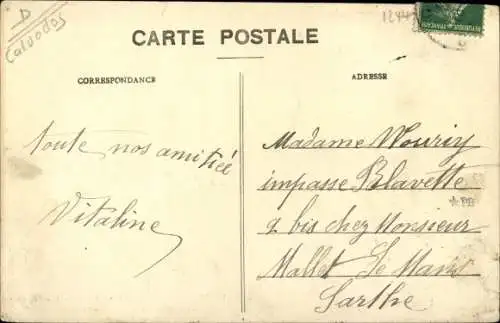 D
Calvados
CARTE POSTALE
CORRESPONDANCE
ADRESSE
toute nos amitiée
Vitaline
Madame Wouriy
impasse Blavette
2 bis chez Monsieur
Mallet Le Mans
Sarthe